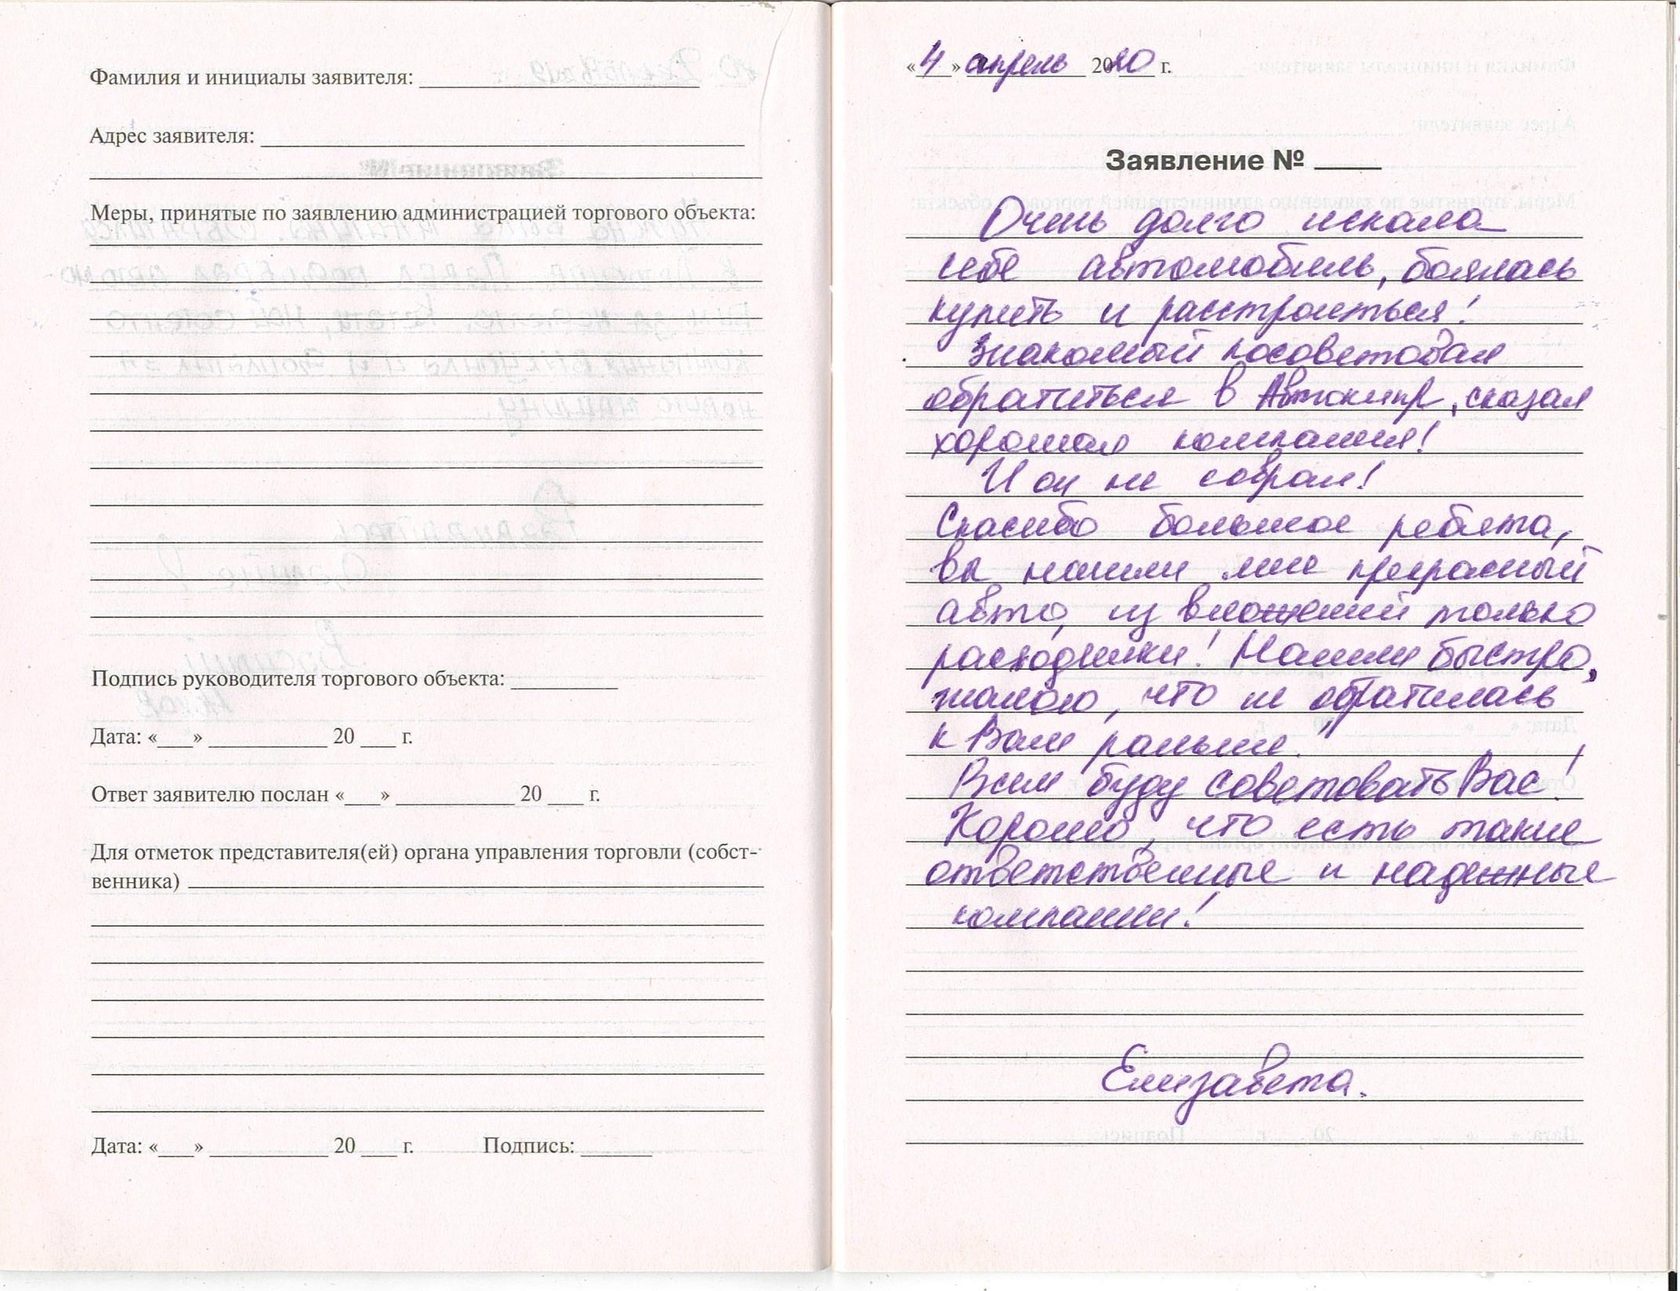 Фамилия и инициалы заявителя:
Адрес заявителя:
Меры, принятые по заявлению администрацией торгового объекта:
Подпись руководителя торгового объекта:
Дата: «___» __________ 20 ___ г.
Ответ заявителю послан «___» __________ 20 ___ г.
Для отметок представителя(ей) органа управления торговли (собст-
венника)
Дата: «___» __________ 20 ___ г. Подпись: ______
«4» апрель 2020 г.
Заявление № ____
Очень долго искала
себе автомобиль, боялась
купить и расстроиться!
Знакомый посоветовал
обратиться в Автокипр, сказал
хорошая компания!
И он не соврал!
Спасибо большое ребята,
вы нашли мне прекрасный
авто, из вложений только
расходники! Нашли быстро,
жалею, что не обратилась
к Вам раньше.
Всем буду советовать Вас!
Хорошо, что есть такие
ответственные и надежные
компании!
Елизавета.